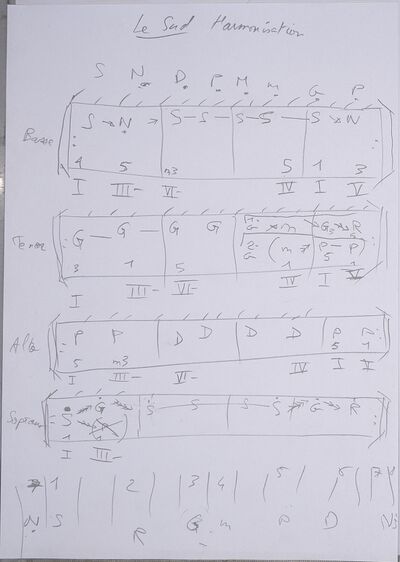 Le Sud Harmonisation
S N D P M m G P
Basse S N S S S S S N
1 5 m3 5 1 3
I III- VI- IV I V
Tenor G G G G 1. G m G R
2. G (m P P)
3 1 5 1 5 1
I III- VI- IV I V
Alto P P D D D D P R
5 m3 5 1
I III- VI- IV I V
Sopran S G S S S S G R
1 1
I III-
1 2 3 4 5 6 7
N S R G m P D Ni